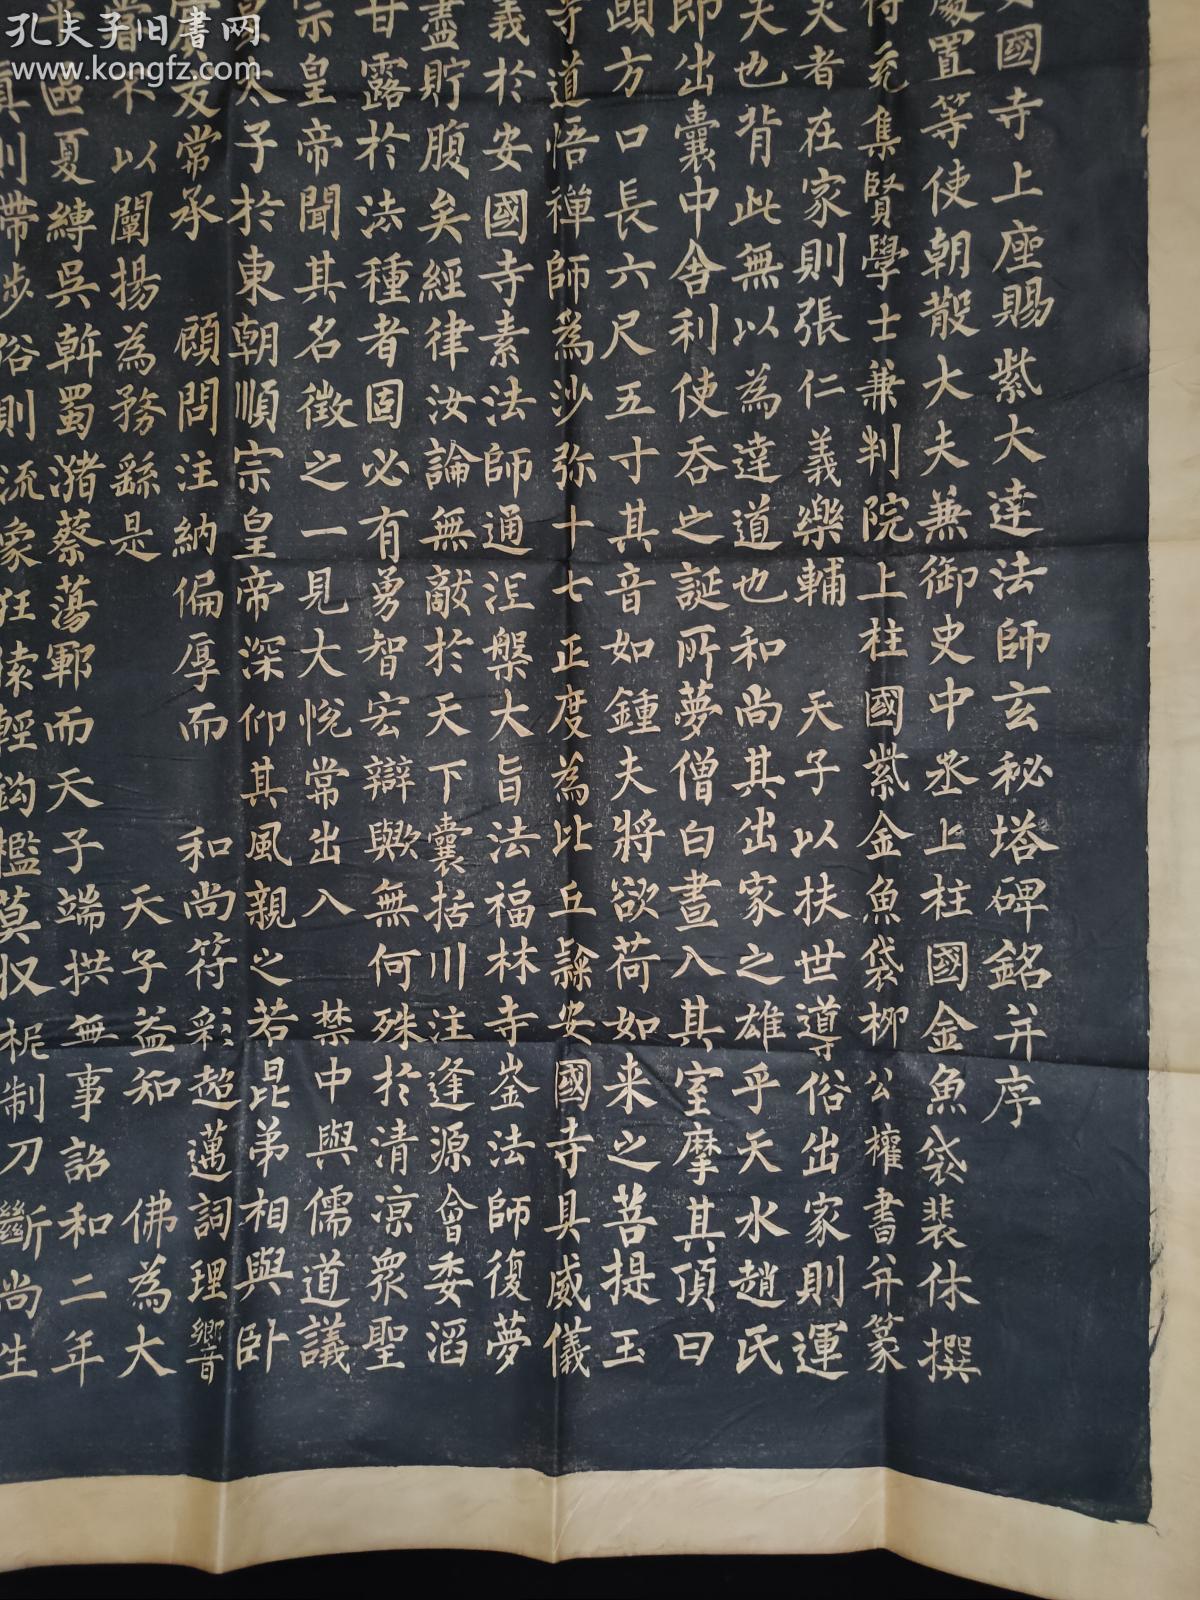 孔夫子旧書网
www.kongfz.com
國寺上座賜紫大達法師玄秘塔碑銘并序
處置等使朝散大夫兼御史中丞上柱國金魚袋裴休撰
充集賢學士兼判院上柱國紫金魚袋柳公權書并篆
者在家則張仁義樂輔 天子以扶世導俗出家則運
夫也背此無以為達道也和尚其出家之雄乎天水趙氏
即出囊中舍利使吞之誕所夢僧白晝入其室摩其頂曰
頤方口長六尺五寸其音如鍾夫將欲荷如来之菩提玉
寺道悟禅師為沙弥十七正度為比丘隸安國寺具威儀
義於安國寺素法師通涅槃大旨法福林寺崟法師復夢
盡貯腹矣經律汝論無敵於天下囊括川注逢源會委滔
甘露於法種者固必有勇智宏辯歟無何殊於清涼衆聖
宗皇帝聞其名徵之一見大悅常出入 禁中與儒道議
太子於東朝順宗皇帝深仰其風親之若昆弟相與卧
友常承 顧問注納偏厚而 和尚符彩超邁詞理響
不以闡揚為務繇是 天子益知 佛為大
區夏縛吳斡蜀潴蔡蕩鄆而天子端拱無事詔和二年
真則帶涉俗則流象狂猿輕鈎檻莫收柅制刀斷尚生